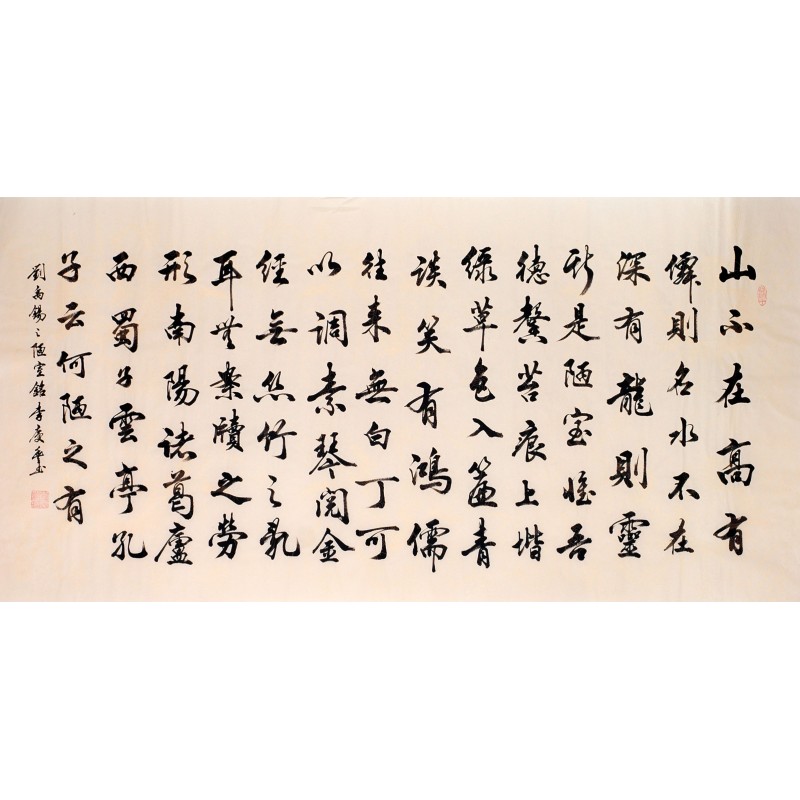 山不在高有
僊則名水不在
深有龍則靈
斯是陋室惟吾
德馨苔痕上堦
綠草色入簾青
談笑有鴻儒
往来無白丁可
以調素琴閱金
經無丝竹之亂
耳無案牘之勞
形南陽諸葛廬
西蜀子雲亭孔
子云何陋之有
劉禹錫之陋室銘李慶平书